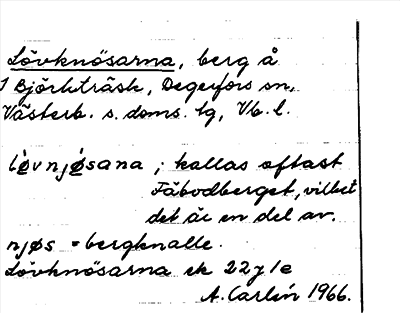 Lövknösarna, berg å
1 Björkträsk, Degerfors sn,
Västerb. s. doms. lg, Vb. l.
lø̀vnjø̀sana ; kallas oftast
Fäbodberget, vilket
det är en del av.
njøs = bergknalle.
Lövknösarna ek 22y1e
A. Carlén 1966.